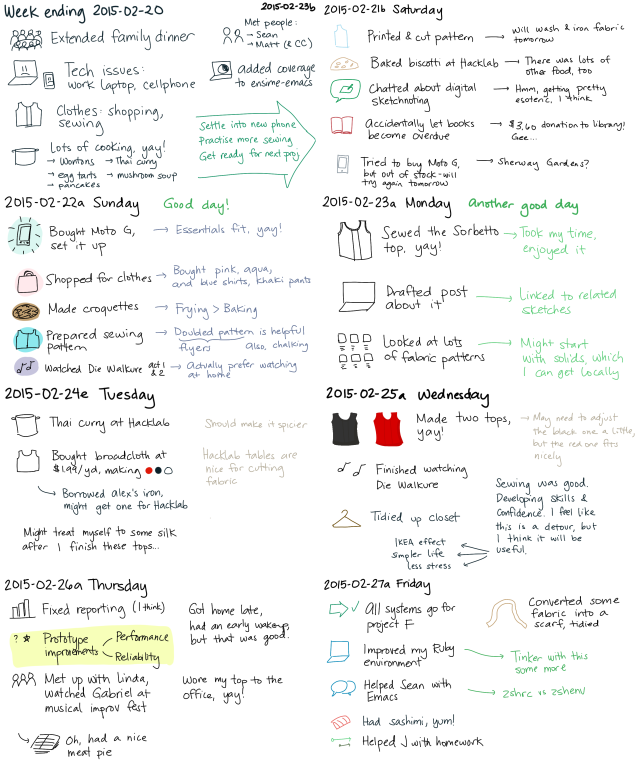 Week ending 2015-02-20
2015-02-23b
Extended family dinner
Met people:
→ Sean
→ Matt (& CC)
Tech issues:
work laptop, cellphone
added coverage
to ensime-emacs
Clothes: shopping,
sewing
Lots of cooking, yay!
→ Wontons → Thai curry
→ egg tarts → mushroom soup
→ pancakes
Settle into new phone
Practise more sewing
Get ready for next proj.
2015-02-21b Saturday
Printed & cut pattern → Will wash & iron fabric
tomorrow
Baked biscotti at Hacklab → There was lots of
other food, too
Chatted about digital
sketchnoting
→ Hmm, getting pretty
esoteric, I think
Accidentally let books
become overdue
→ $3.60 donation to library!
Gee...
Tried to buy Moto G,
but out of stock-will
try again tomorrow
→ Sherway Gardens?
2015-02-22a Sunday Good day!
Bought Moto G,
set it up
→ Essentials fit, yay!
Shopped for clothes → Bought pink, aqua,
and blue shirts, khaki pants
Made croquettes → Frying > Baking
Prepared sewing
pattern
→ Doubled pattern is helpful
flyers also, chalking
Watched Die Walkure act 1
& 2
→ Actually prefer watching
at home
2015-02-23a Monday Another good day
Sewed the Sorbetto
top, yay!
→ Took my time,
enjoyed it
Drafted post
about it
→ Linked to related
sketches
Looked at lots
of fabric patterns
→ Might start
with solids, which
I can get locally
2015-02-24e Tuesday
Thai curry at Hacklab
Should make it spicier
Bought broadcloth at
$1.99/yd, making
Hacklab tables are
nice for cutting
fabric
→ Borrowed alex's iron,
might get one for Hacklab
Might treat myself to some silk
after I finish these tops...
2015-02-25a Wednesday
Made two tops,
yay!
→ May need to adjust
the black one a little,
but the red one fits
nicely
Finished watching
Die Walkure
Tidied up closet
Sewing was good.
Developing skills &
confidence. I feel like
this is a detour, but
I think it will be
useful.
IKEA effect
simpler life
less stress
2015-02-26a Thursday
Fixed reporting (I think)
? ★ Prototype
improvements
Performance
Reliability
Got home late,
had an early wakeup,
but that was good.
Met up with Linda,
watched Gabriel at
musical improv fest
Wore my top to the
office, yay!
Oh, had a nice
meat pie
2015-02-27a Friday
All systems go for
project F
Converted some
fabric into a
scarf, tidied
Improved my Ruby
environment
→ Tinker with this
some more
Helped Sean with
Emacs
→ zshrc vs zshenv
Had sashimi, yum!
Helped J with homework